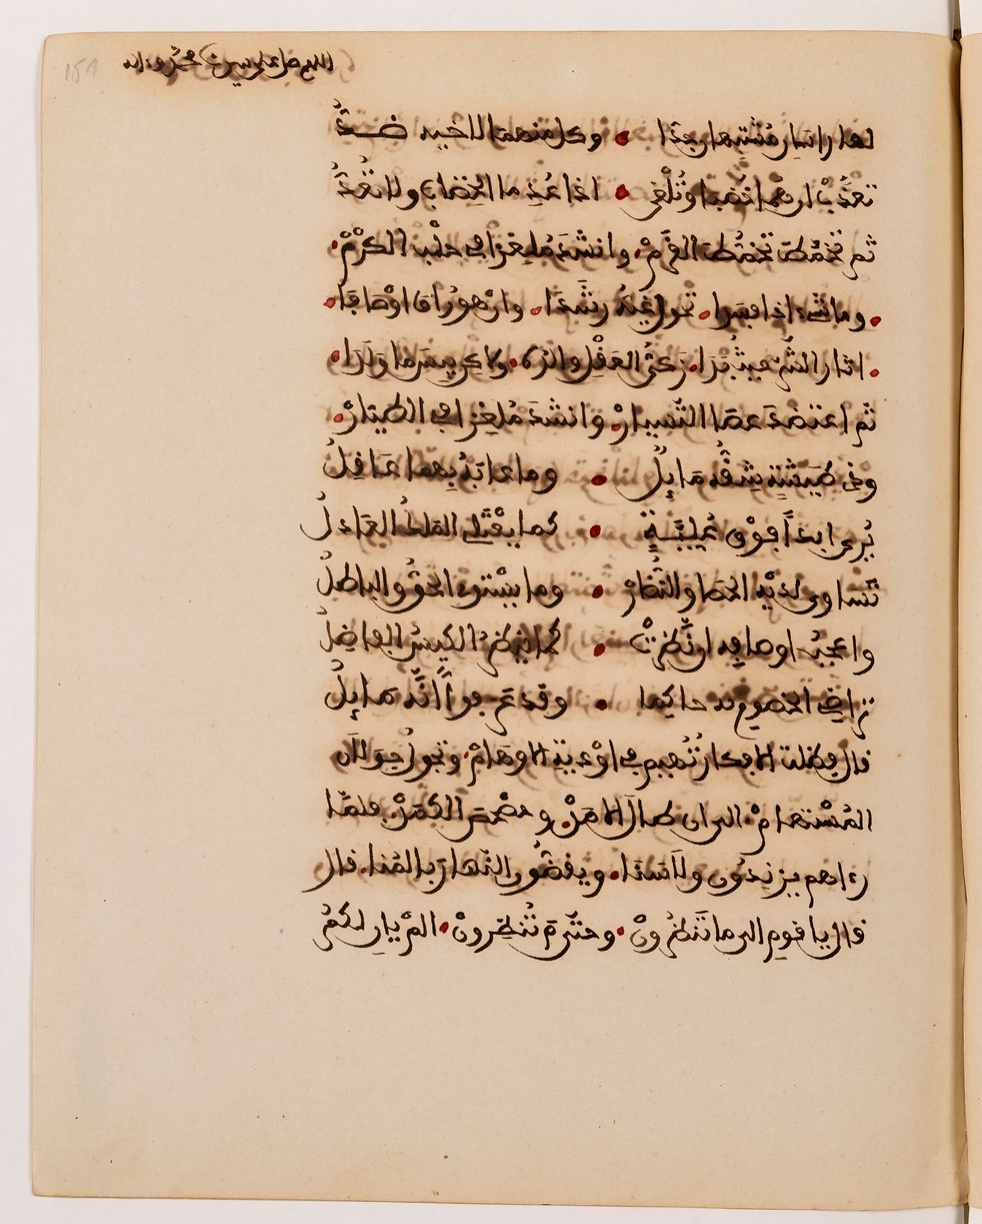 اللهم صل على سيدنا محمد وءاله
لها رأسان مشتبهان جدّا • وكل منهما لأخيه ضدُّ
تعذَّب ان هما خضبا وتُلْغى • اذا عدما الخضاب ولا تعدُّ
ثم تخمّط تخمُّط القرْمْ • وانشد ملغزا في حلْب الكرْمْ •
• وما شىء اذا فسدا • تحول غيّه رشَدا • وان هو راق اوصافا •
• اثار الشرّ حيث بدا • زكىّ والده • ولكن بيس ما ولدا •
ثم اعتضد عصا التّسيارْ • وانشد مُلغزا في الطيّارْ •
وذي طيْشةٍ شِقُّه مَايلُ • وما عابَهُ بهما عاقِلُ
يُرى ابداً فوْق عُلِيّةٍ • كما يعْتلي الملكُ العَادلُ
تساوى لديْه الحصا والنُّضارُ • وما يستوي الحقُّ والباطلُ
واعجبُ اوصافه ان نَّظرْتْ • كما ينظرُ الكيّسُ الفاضِلُ
تراضِي الخصوم به حاكما • وقد عرفوا أنَّه مَايلُ
قال فظلت الافكار تهيم في اوْدية الاوهَامْ • وتجول جولان
المُسْتهامْ • الى ان طال الامدْ • وحصْحص الكمَدْ • فلمّا
رءاهم يزندون ولا سَنا • ويقضُون النّهار بالمُنا • قال
قال يا قوم الى ما تَنظُرونْ • وحتّى مَ تُنْظَرونْ • المْ يانِ لكمُ